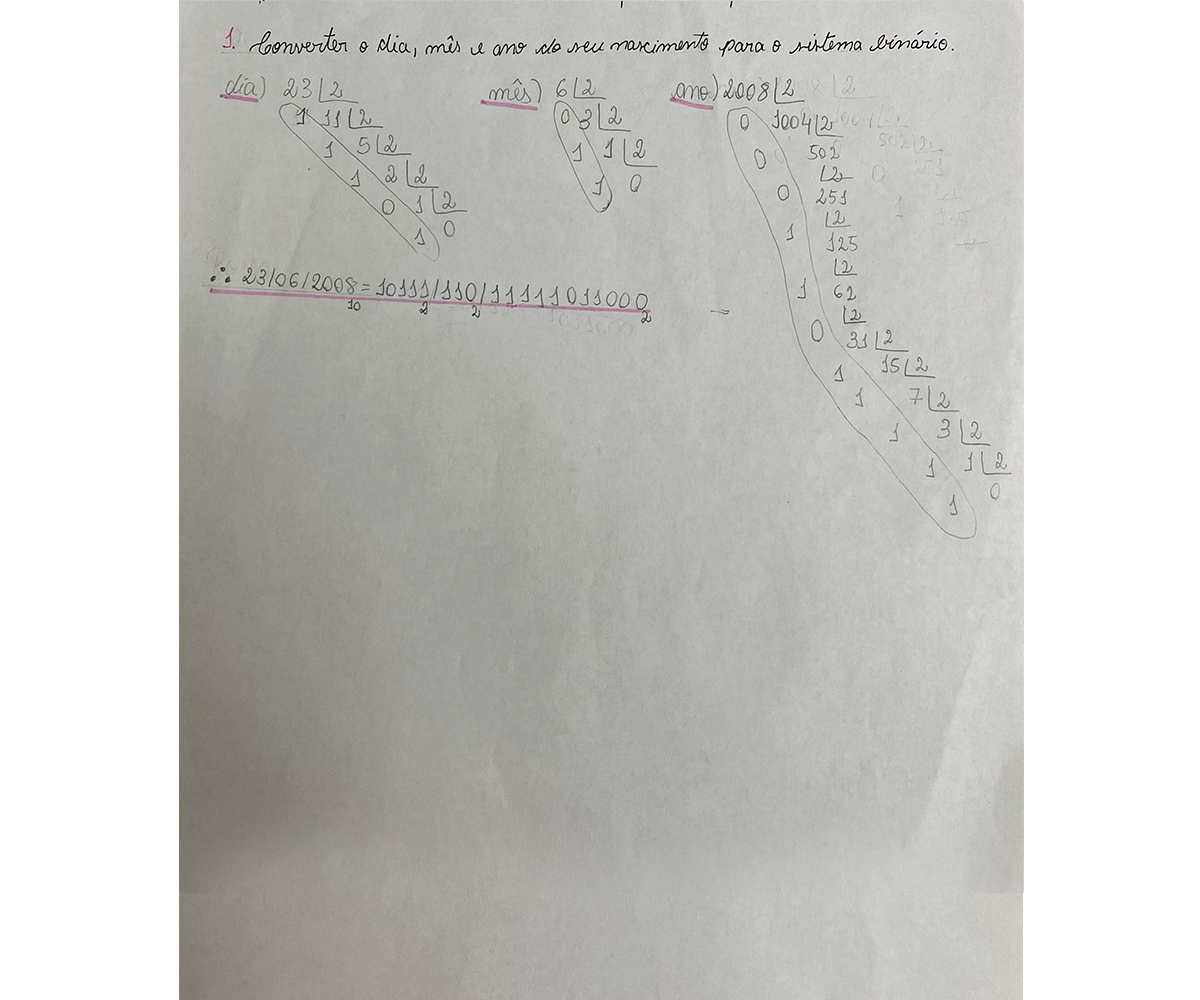 1. Converter o dia, mês e ano do seu nascimento para o sistema binário.
dia) 23 2
1 11 2
1 5 2
1 2 2
0 1 2
1 0
mês) 6 2
0 3 2
1 1 2
1 0
ano) 2008 2
0 1004 2
0 502
2
0 251
2
1 125
2
1 62
2
0 31 2
1 15 2
1 7 2
1 3 2
1 1 2
1 0
∴ 23/06/2008 = 10111/110/11111011000
10 2 2 2